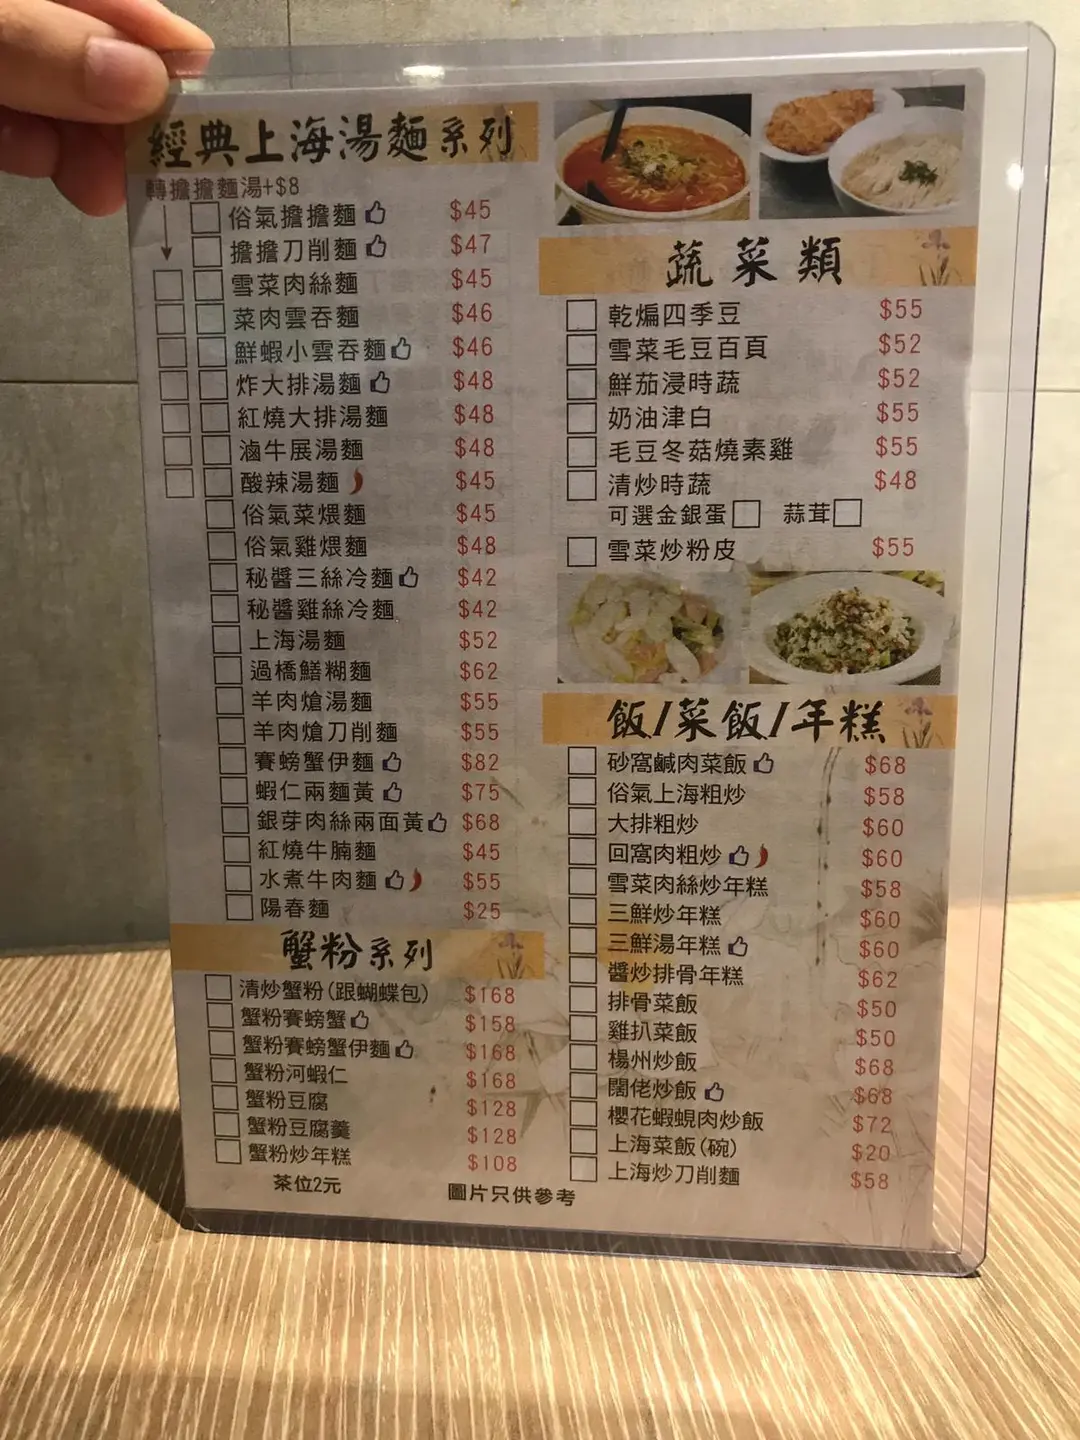 經典上海湯麵系列
轉擔擔麵湯+$8
俗氣擔擔麵 $45
擔擔刀削麵 $47
雪菜肉絲麵 $45
菜肉雲吞麵 $46
鮮蝦小雲吞麵 $46
炸大排湯麵 $48
紅燒大排湯麵 $48
滷牛展湯麵 $48
酸辣湯麵 $45
俗氣菜煨麵 $45
俗氣雞煨麵 $48
秘醬三絲冷麵 $42
秘醬雞絲冷麵 $42
上海湯麵 $52
過橋鱔糊麵 $62
羊肉熗湯麵 $55
羊肉熗刀削麵 $55
賽螃蟹伊麵 $82
蝦仁兩麵黃 $75
銀芽肉絲兩面黃 $68
紅燒牛腩麵 $45
水煮牛肉麵 $55
陽春麵 $25
蟹粉系列
清炒蟹粉(跟蝴蝶包) $168
蟹粉賽螃蟹 $158
蟹粉賽螃蟹伊麵 $168
蟹粉河蝦仁 $168
蟹粉豆腐 $128
蟹粉豆腐羹 $128
蟹粉炒年糕 $108
茶位2元
蔬菜類
乾煸四季豆 $55
雪菜毛豆百頁 $52
鮮茄浸時蔬 $52
奶油津白 $55
毛豆冬菇燒素雞 $55
清炒時蔬 $48
可選金銀蛋 蒜茸
雪菜炒粉皮 $55
飯/菜飯/年糕
砂窩鹹肉菜飯 $68
俗氣上海粗炒 $58
大排粗炒 $60
回窩肉粗炒 $60
雪菜肉絲炒年糕 $58
三鮮炒年糕 $60
三鮮湯年糕 $60
醬炒排骨年糕 $62
排骨菜飯 $50
雞扒菜飯 $50
楊州炒飯 $68
闊佬炒飯 $68
櫻花蝦蜆肉炒飯 $72
上海菜飯(碗) $20
上海炒刀削麵 $58
圖片只供參考